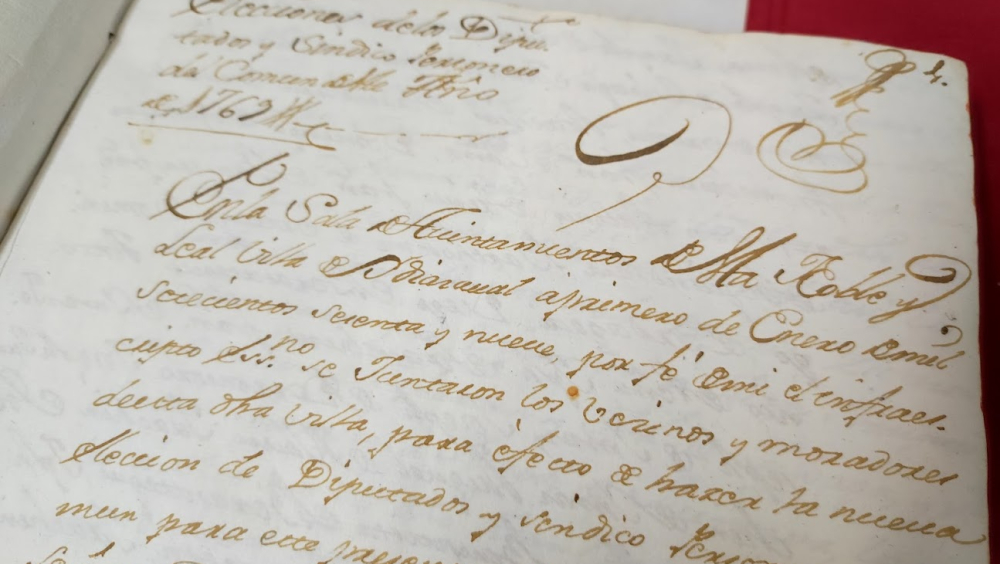 Elecciones delos Dipu
tados y Sindico Perzonero
del Comun deste Año
de 1769
4.
Enla Sala Aiuntamientos de Sta Noble y
Leal Villa de apximero de Enero de mil
setecientos sesenta y nueve, por fé de mi el infraes-
cripto Essno se Juntaron los Vezinos y moradores
deesta dha villa, para efecto de hazer la nueva
Eleccion de Diputados y sindico Perzo
mun para este presen